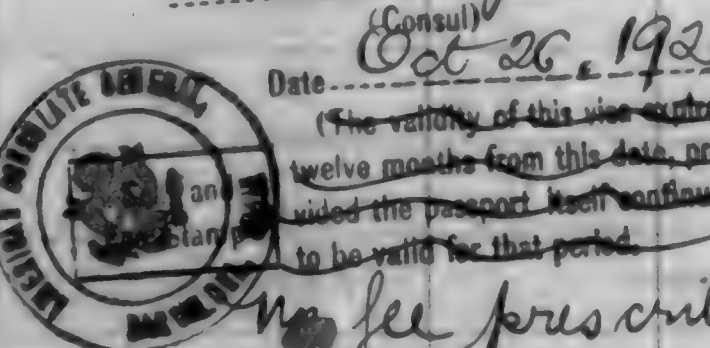 (Consul)
Oct 26, 192
Date
(The validity of this vise expir
twelve months from this date, pro
vided the passport itself continu
to be valid for that period.
No fee prescri
AMERICAN CONSULATE GENERAL
and
Stamp